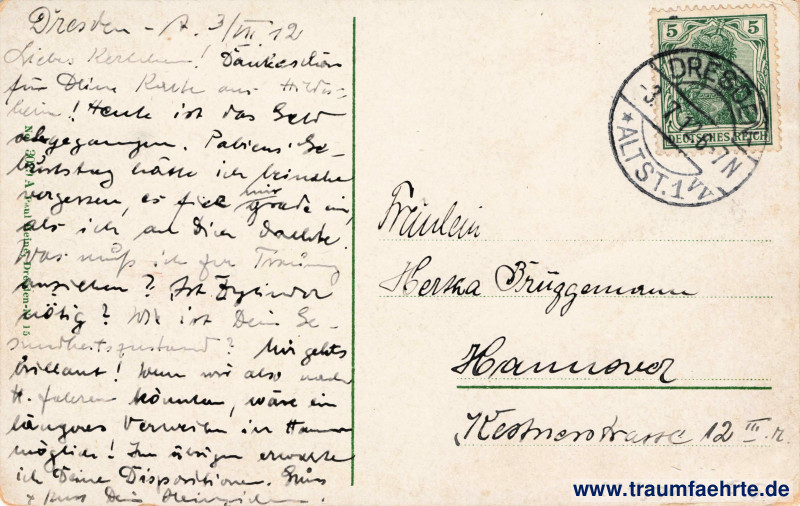 Dresden - A. 3/VII. 12
Liebes Kerlchen! Dankeschön
für Deine Karte aus Hildes-
heim! Heute ist das Geld
abgegangen. Ge-
burtstag hätte ich beinahe
vergessen, es fiel mir grade ein,
als ich an Dich dachte.
Was muß ich zur Trauung
anziehen? Ist Zylinder
nötig? Wie ist Dein Ge-
sundheitszustand? Mir gehts
brillant! Wenn wir also nach
H. fahren könnten, wäre ein
längeres Verweilen in Hannover
möglich! Im übrigen erwarte
ich Deine Dispositionen. Gruss
+ Kuss Dein
5 5
DEUTSCHES REICH
DRESDEN
-3.7.12. 6-7N
* ALTST. 1
Fräulein
Herta Brüggemann
Hannover
Kestnerstrasse 12 III. r.
www.traumfaehrte.de